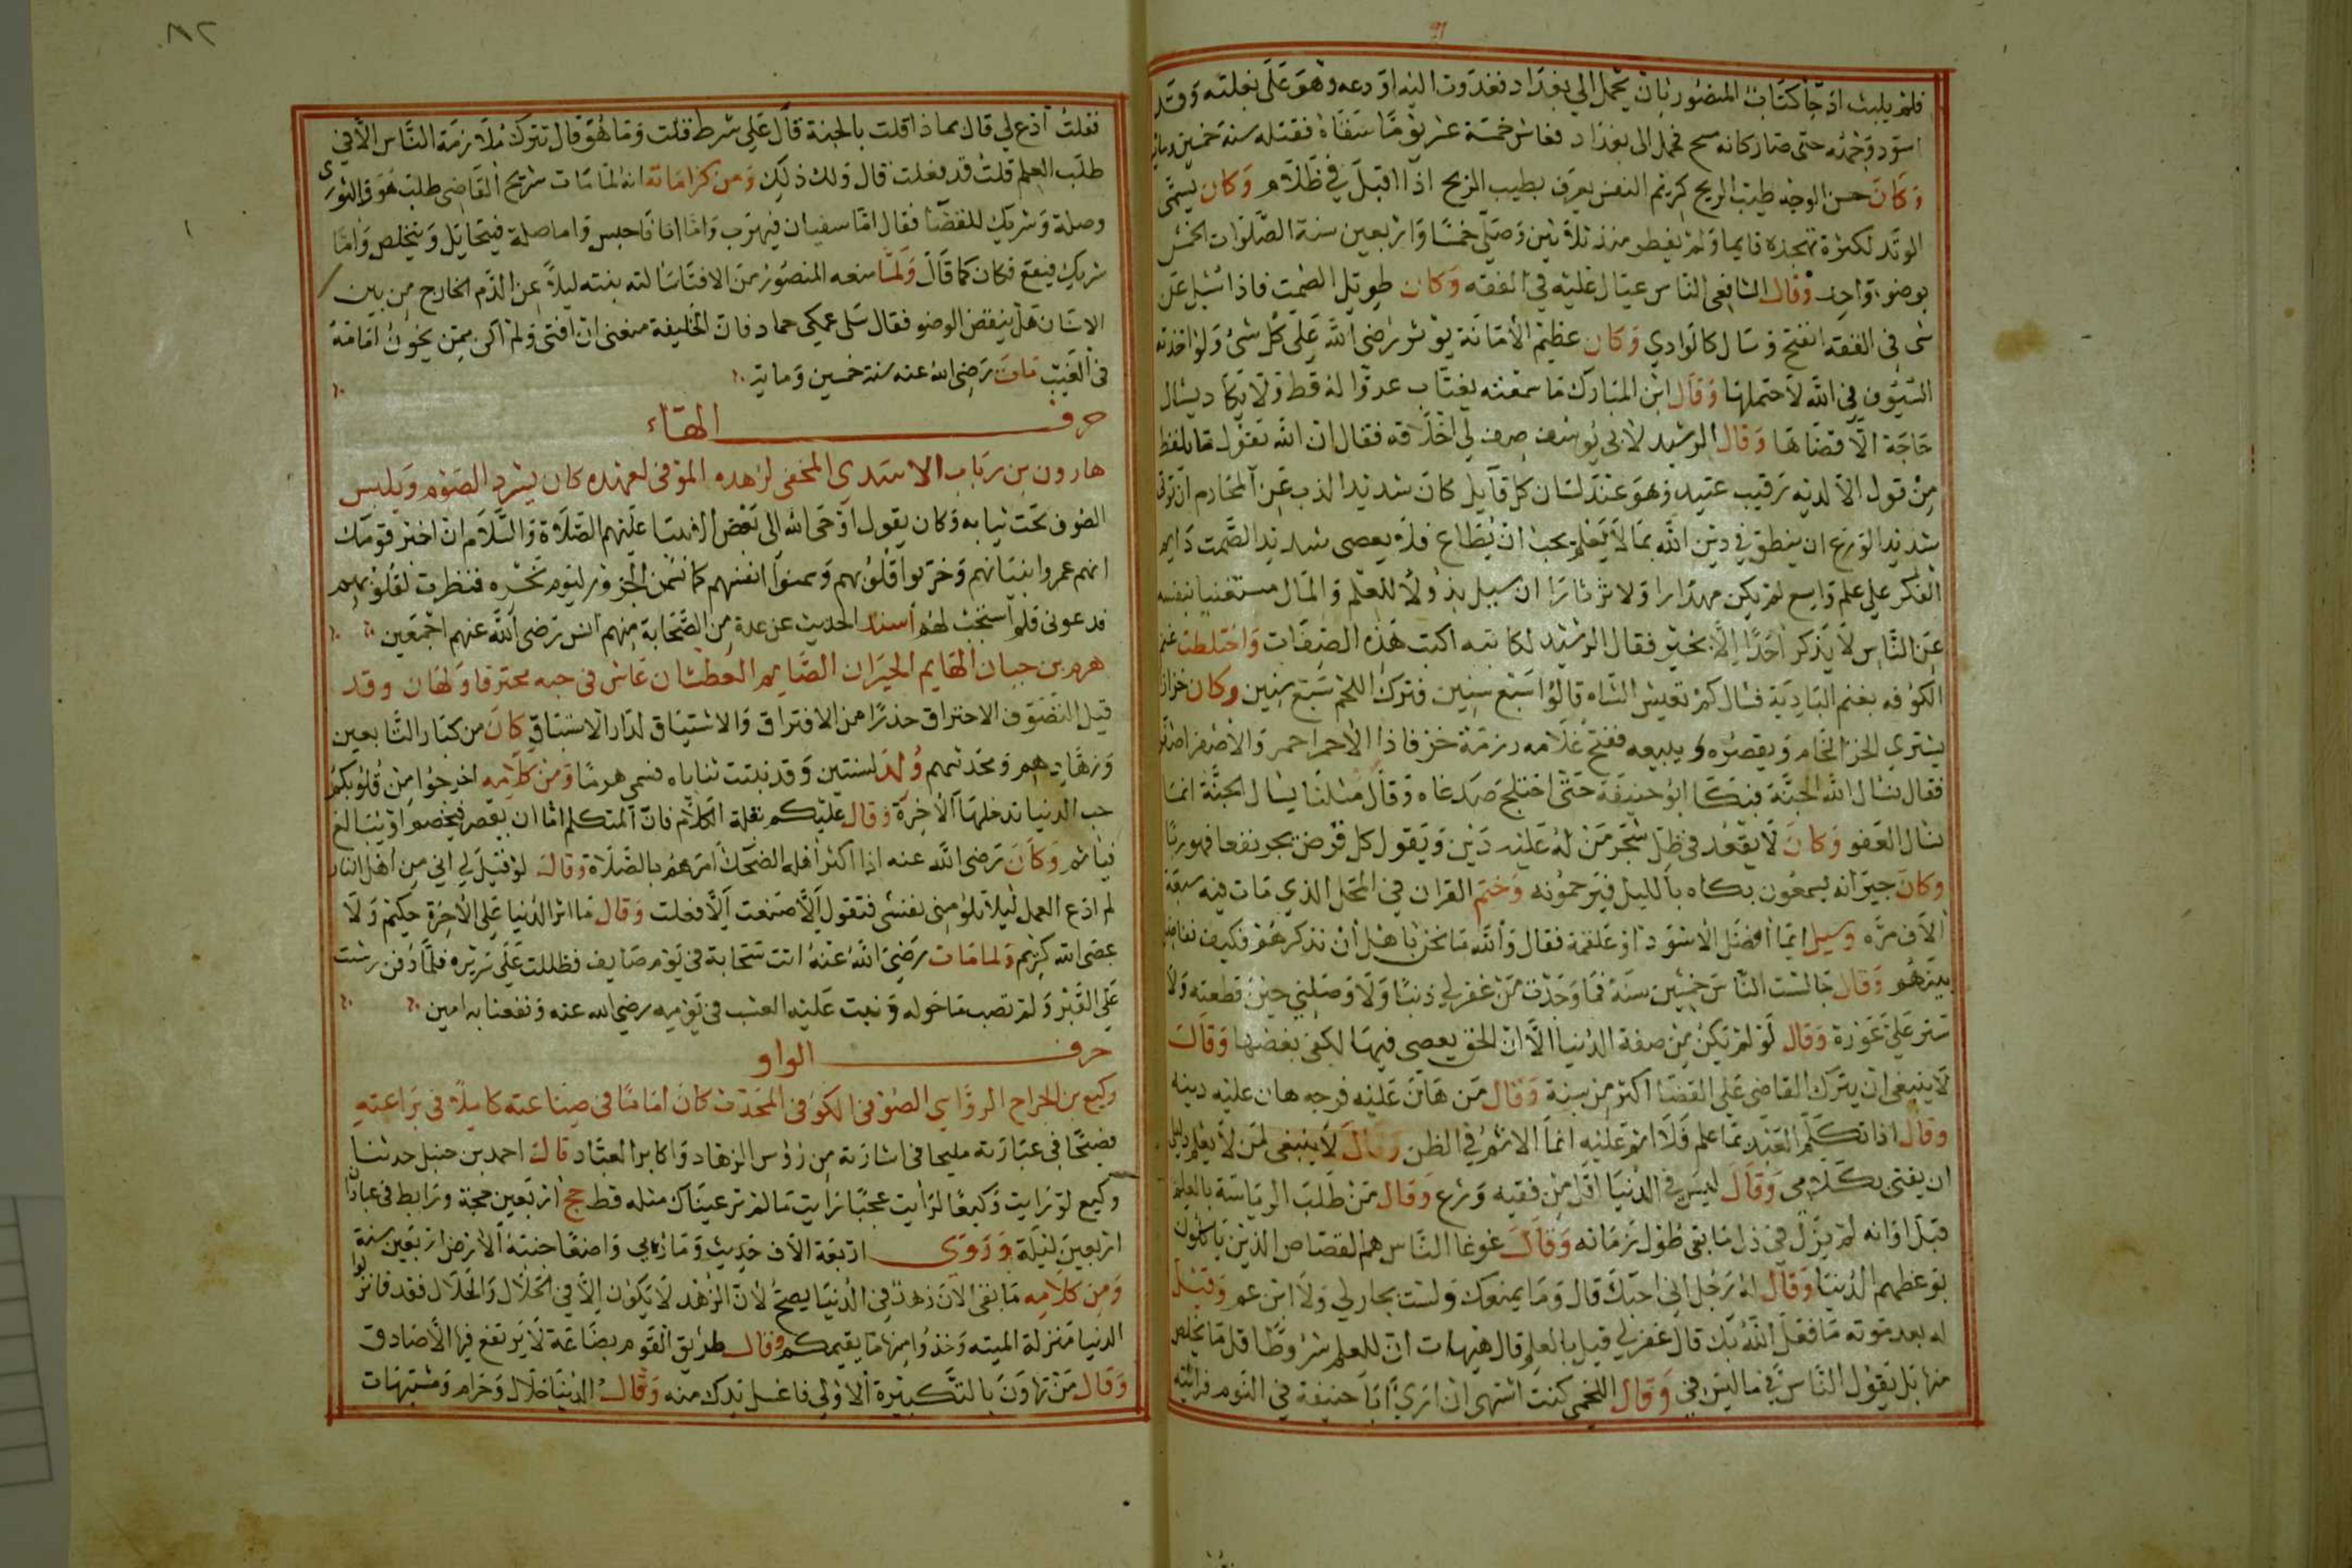 فلم يلبث اذ جا كتاب المنصور بان يحمل الي بغداد فغدوت اليه اودعه وهو علي بغلته وقد
اسود وجهه حتى صار كانه مسح فحمل الى بغداد فعاش خمسة عشر يوما سقاه فقتله سنة خمسين وماية
وكان حسن الوجه طيب الريح كريم النفس يعرف بطيب الريح اذا اقبل في ظلام وكان يسمى
الوتد لكثرة تهجده قايما ولم يفطر منذ ثلاثين وصلى خمسا واربعين سنة الصلوات الخمس
بوضوء واحد وقال الشافعي الناس عيال عليه في الفقه وكان طويل الصمت فاذا سئل عن
شى في الفقه انفتح وسال كالوادي وكان عظيم الأمانة يوثر رضى الله علي كل شئ ولو اخذته
السيوف في الله لاحتملها وقال ابن المبارك ما سمعته يغتاب عدوا له قط ولا يكاد يسال
حاجة الا قضاها وقال الرشيد لابي يوسف صف لي اخلاقه فقال ان الله يقول ما يلفظ
من قول الا لديه رقيب عتيد وهو عند لسان كل قايل كان شديد الذب عن المحارم ان توتى
شديد الورع ان ينطق في دين الله بما لا يعلم يحب ان يطاع فلا يعصى شديد الصمت دايم
الفكر علي علم واسع لم يكن مهدارا ولا ثرثارا ان سيل بذولا للعلم والمال مستغنيا بنفسه
عن الناس لا يذكر احدا إلا بخير فقال الرشيد لكاتبه اكتب هذه الصفات واختلطت غنم
الكوفه بغنم البادية فسال كم تعيش الشاه قالوا سبع سنين فترك اللحم سبع سنين وكان خزاز
يشتري الخز الخام ويقصره ويبيعه ففتح غلامه رزمة خز فاذا الأحمر احمر والأصفر اصفر
فقال نسال الله الجنة فبكا ابو حنيفة حتى اختلج صدغاه وقال مثلنا يسال الجنة انما
نسال العفو وكان لا يقعد في ظل شجر من له عليه دين ويقول كل قرض يجر نفعا فهو ربا
وكان جيرانه يسمعون بكاه بالليل فيرحمونه وختم القران في المحل الذي مات فيه سبعة
الاف مره وسيل ايما افضل الأسود او علقمة فقال والله ما نحن باهل أن نذكرهم فكيف نفاضل
بينهم وقال جالست الناس خمسين سنة فما وجدت من غفر لي ذنبا ولا وصلني حين قطعته ولا
ستر علي عورة وقال لو لم يكن من صفة الدنيا الا ان الحق يعصى فيها لكفى بغضها وقال
لا ينبغي ان يترك القاضي على القضا اكثر من سنة وقال من هان عليه فرجه هان عليه دينه
وقال اذا تكلم العبد بما علم فلا اثم عليه انما الاثم في الظن وقال لا ينبغي لمن لا يعلم دليلي
ان يفتى بكلامى وقال ليس في الدنيا اقل من فقيه ورع وقال من طلب الرياسة بالعلم
قبل اوانه لم يزل في ذل ما بقى طول زمانه وقال غوغا الناس هم القصاص الذين ياكلون
بوعظهم الدنيا وقال له رجل انى احبك قال وما يمنعك ولست بجار لي ولا ابن عم وقيل
له بعد موته ما فعل الله بك قال غفر لي قيل بالعلم قال هيهات ان للعلم شروطا قل ما يخلص
منها بل بقول الناس في ما ليس في وقال اللخمي كنت اشتهي ان ارى ابا حنيفة في النوم فرايته
٨٢
فقلت أدع لي قال بماذا قلت بالجنة قال علي شرط قلت وما هو قال تترك ملازمة الناس الا في
طلب العلم قلت قد فعلت قال ولك ذلك ومن كراماته انه لما مات شريح القاضي طلب هو والثورى
وصلة وشريك للقضا فقال اما سفيان فيهرب واما انا فاحبس واما صلة فيتحايل ويتخلص واما
شريك فيقع فكان كما قال ولما منعه المنصور من الافتا سالته بنته ليلا عن الدم الخارج من بين
الاسنان هل ينقض الوضو فقال سلى عمكى حماد فان الخليفة منعنى ان افتى ولم أكن ممن يخون امامه
في الغيب مات رضى الله عنه سنة خمسين وماية
حرف الهاء
هارون بن رياب الاسدي المخفى لزهده الموفى لعهده كان يسرد الصوم ويلبس
الصوف تحت ثيابه وكان يقول اوحى الله الى بعض أنبيا عليهم الصلاة والسلام ان اخبر قومك
انهم عمروا بنيانهم وخربوا قلوبهم وسمنوا انفسهم كما تسمن الجزور ليوم نحره فنظرت لقلوبهم
فدعونى فلم أستجب لهم أسند الحديث عن عدة من الصحابة منهم انس رضى الله عنهم اجمعين
هرم بن حيان الهايم الحيران الصايم العطشان عاش في حبه محترقا ولهان وقد
قيل التصوف الاحتراق حذرا من الافتراق والاشتياق لدار الاستباق كان من كبار التابعين
وزهادهم ومحدثهم ولد لسنتين وقد نبتت ثناياه فسمي هرما ومن كلامه اخرجوا من قلوبكم
حب الدنيا تدخلها الأخرة وقال عليكم بقلة الكلام فان المتكلم اما ان يقصر فيخصم او يبالغ
فياثم وكان رضى الله عنه اذا اكثر أهله الضحك أمرهم بالصلاة وقال لو قيل لي انى من اهل النار
لم ادع العمل ليلا تلومنى نفسى فتقول ألا صنعت ألا فعلت وقال ما اثر الدنيا علي الأخرة حكيم ولا
عصى الله كريم ولما مات رضى الله عنه اتت سحابة في يوم صايف فظللت علي سريره فلما دفن رشت
علي القبر ولم تصب ما حوله ونبت عليه العشب في يومه رضي الله عنه ونفعنا به امين
حرف الواو
وكيع بن الجراح الرؤاسي الصوفى الكوفى المحدث كان اماما في صناعته كاملا في براعته
فصيحا في عبارته مليحا في اشارته من رؤس الزهاد واكابر العباد قال احمد بن حنبل حدثنا
وكيع لو رايت وكيعا لرأيت عجبا رأيت ما لم تر عيناك مثله قط حج اربعين حجة ورابط في عبادان
اربعين ليلة وروى اربعة الاف حديث وما رءي واضعا جنبه الأرض اربعين سنة
ومن كلامه ما بقى الان زهد في الدنيا يصح لأن الزهد لا يكون إلا في الحلال والحلال فقد فانزلوا
الدنيا منزلة الميته وخذوا منها ما يقيمكم وقال طريق القوم بضاعة لا يرتفع فيها الا صادق
وقال من تهاون بالتكبيرة الأولي فاغسل يدك منه وقال الدنيا حلال وحرام ومشتبهات